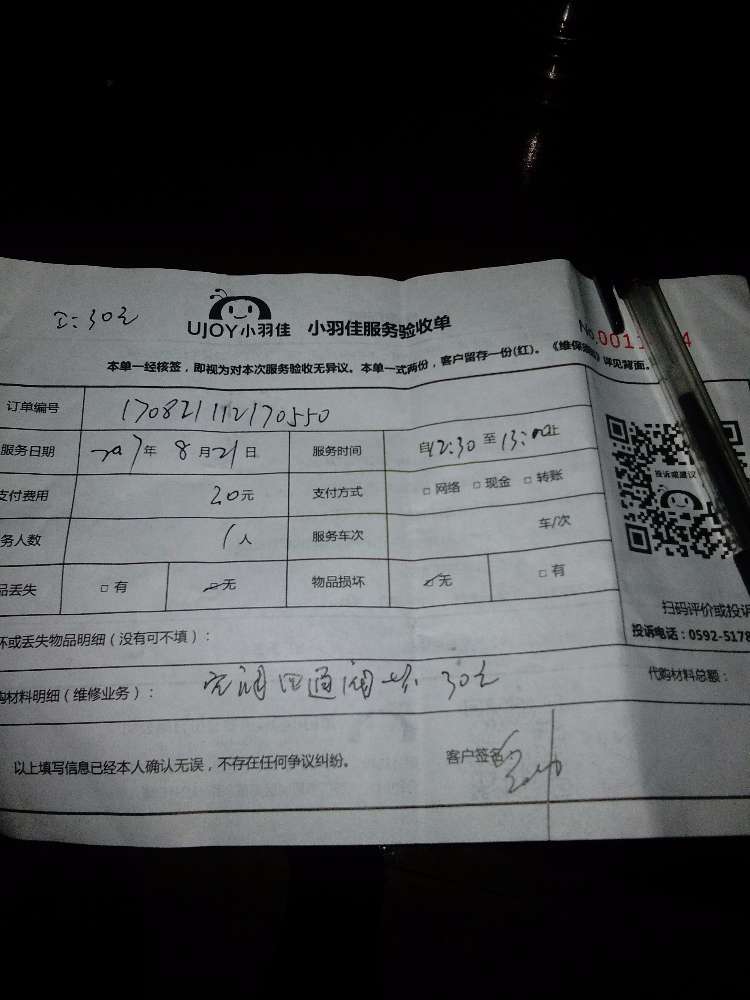 工:30元
UJOY小羽佳 小羽佳服务验收单
本单一经核签,即视为对本次服务验收无异议。本单一式两份,客户留存一份(红)。《维保 详见背面。
订单编号 170821112170550
服务日期 2017年 8月21日 服务时间 自12:30至13:00止
支付费用 20元 支付方式 □网络 □现金 □转账
务人数 1人 服务车次 车/次
品丢失 □有 □无 物品损坏 □无 □有
投诉或建议
扫码评价或投诉
投诉电话:0592-5178
坏或丢失物品明细(没有可不填):
购材料明细(维修业务): 空调四通阀坏 30元 代购材料总额:
以上填写信息已经本人确认无误,不存在任何争议纠纷。 客户签名